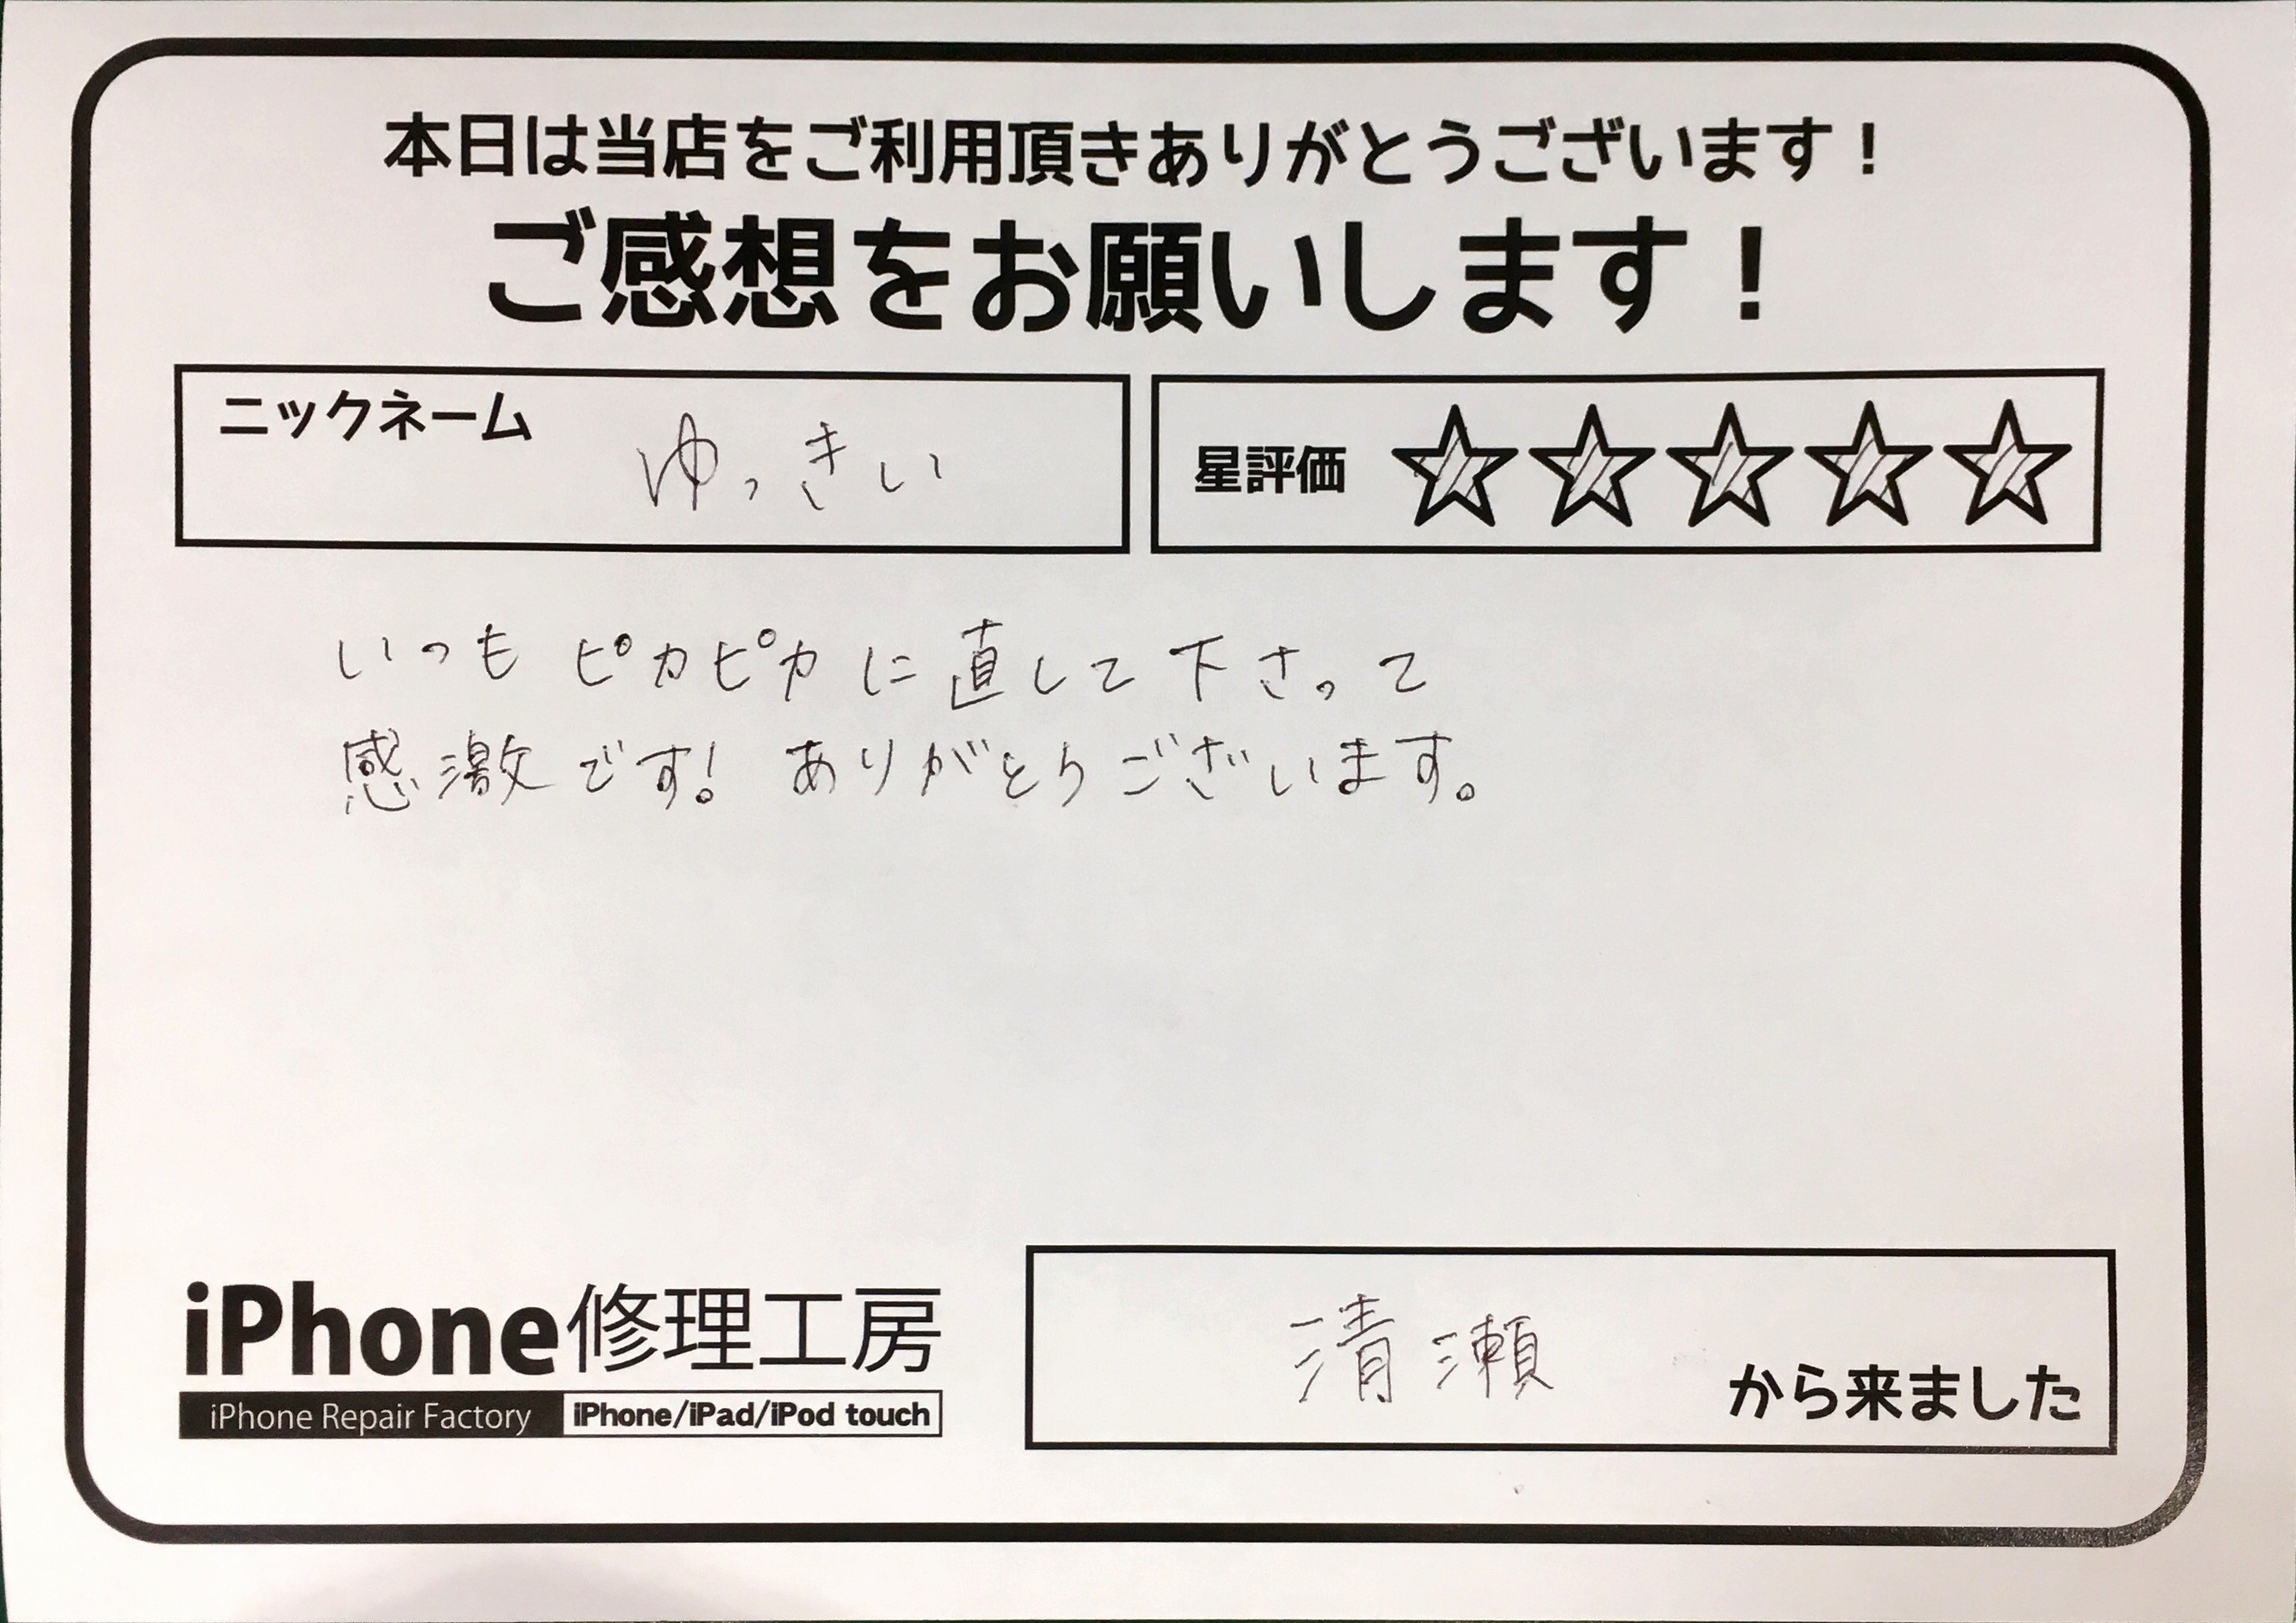 本日は当店をご利用頂きありがとうございます！
ご感想をお願いします！
ニックネーム ゆっきい
星評価 ☆☆☆☆☆
いつもピカピカに直して下さって
感激です！ありがとうございます。
iPhone修理工房
iPhone Repair Factory iPhone/iPad/iPod touch
清瀬 から来ました